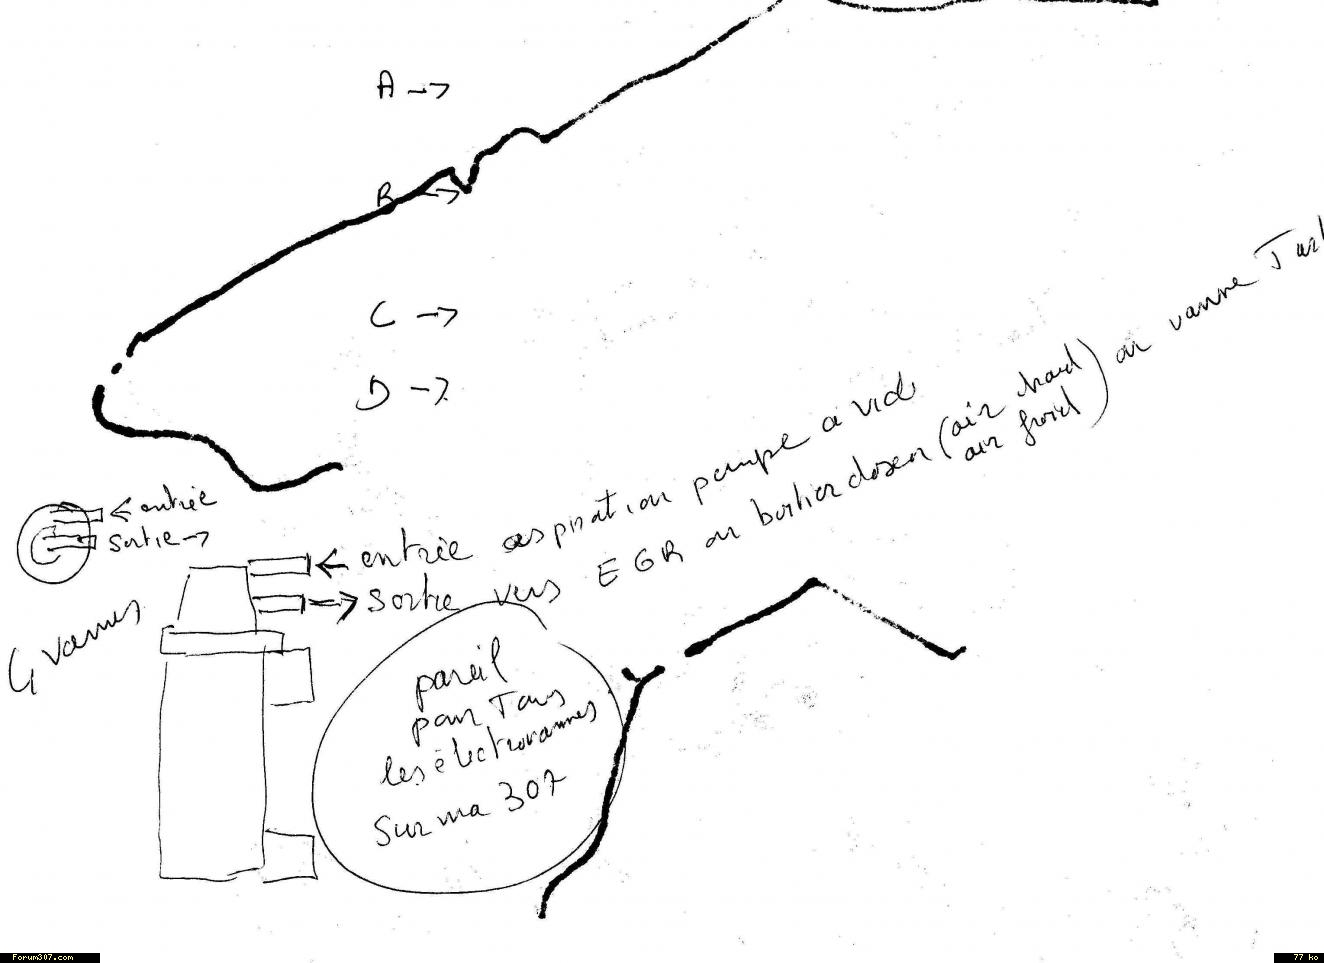 A ->
B ->
C ->
D ->
<- entrée
sortie ->
<- entrée aspiration pompe a vid
-> Sortie vers EGR ou boitier doseur (air chaud) ou vanne Tur
air froid
4 vannes
pareil
pour Tous
les électrovannes
Sur ma 307
Forum307.com
77 ko